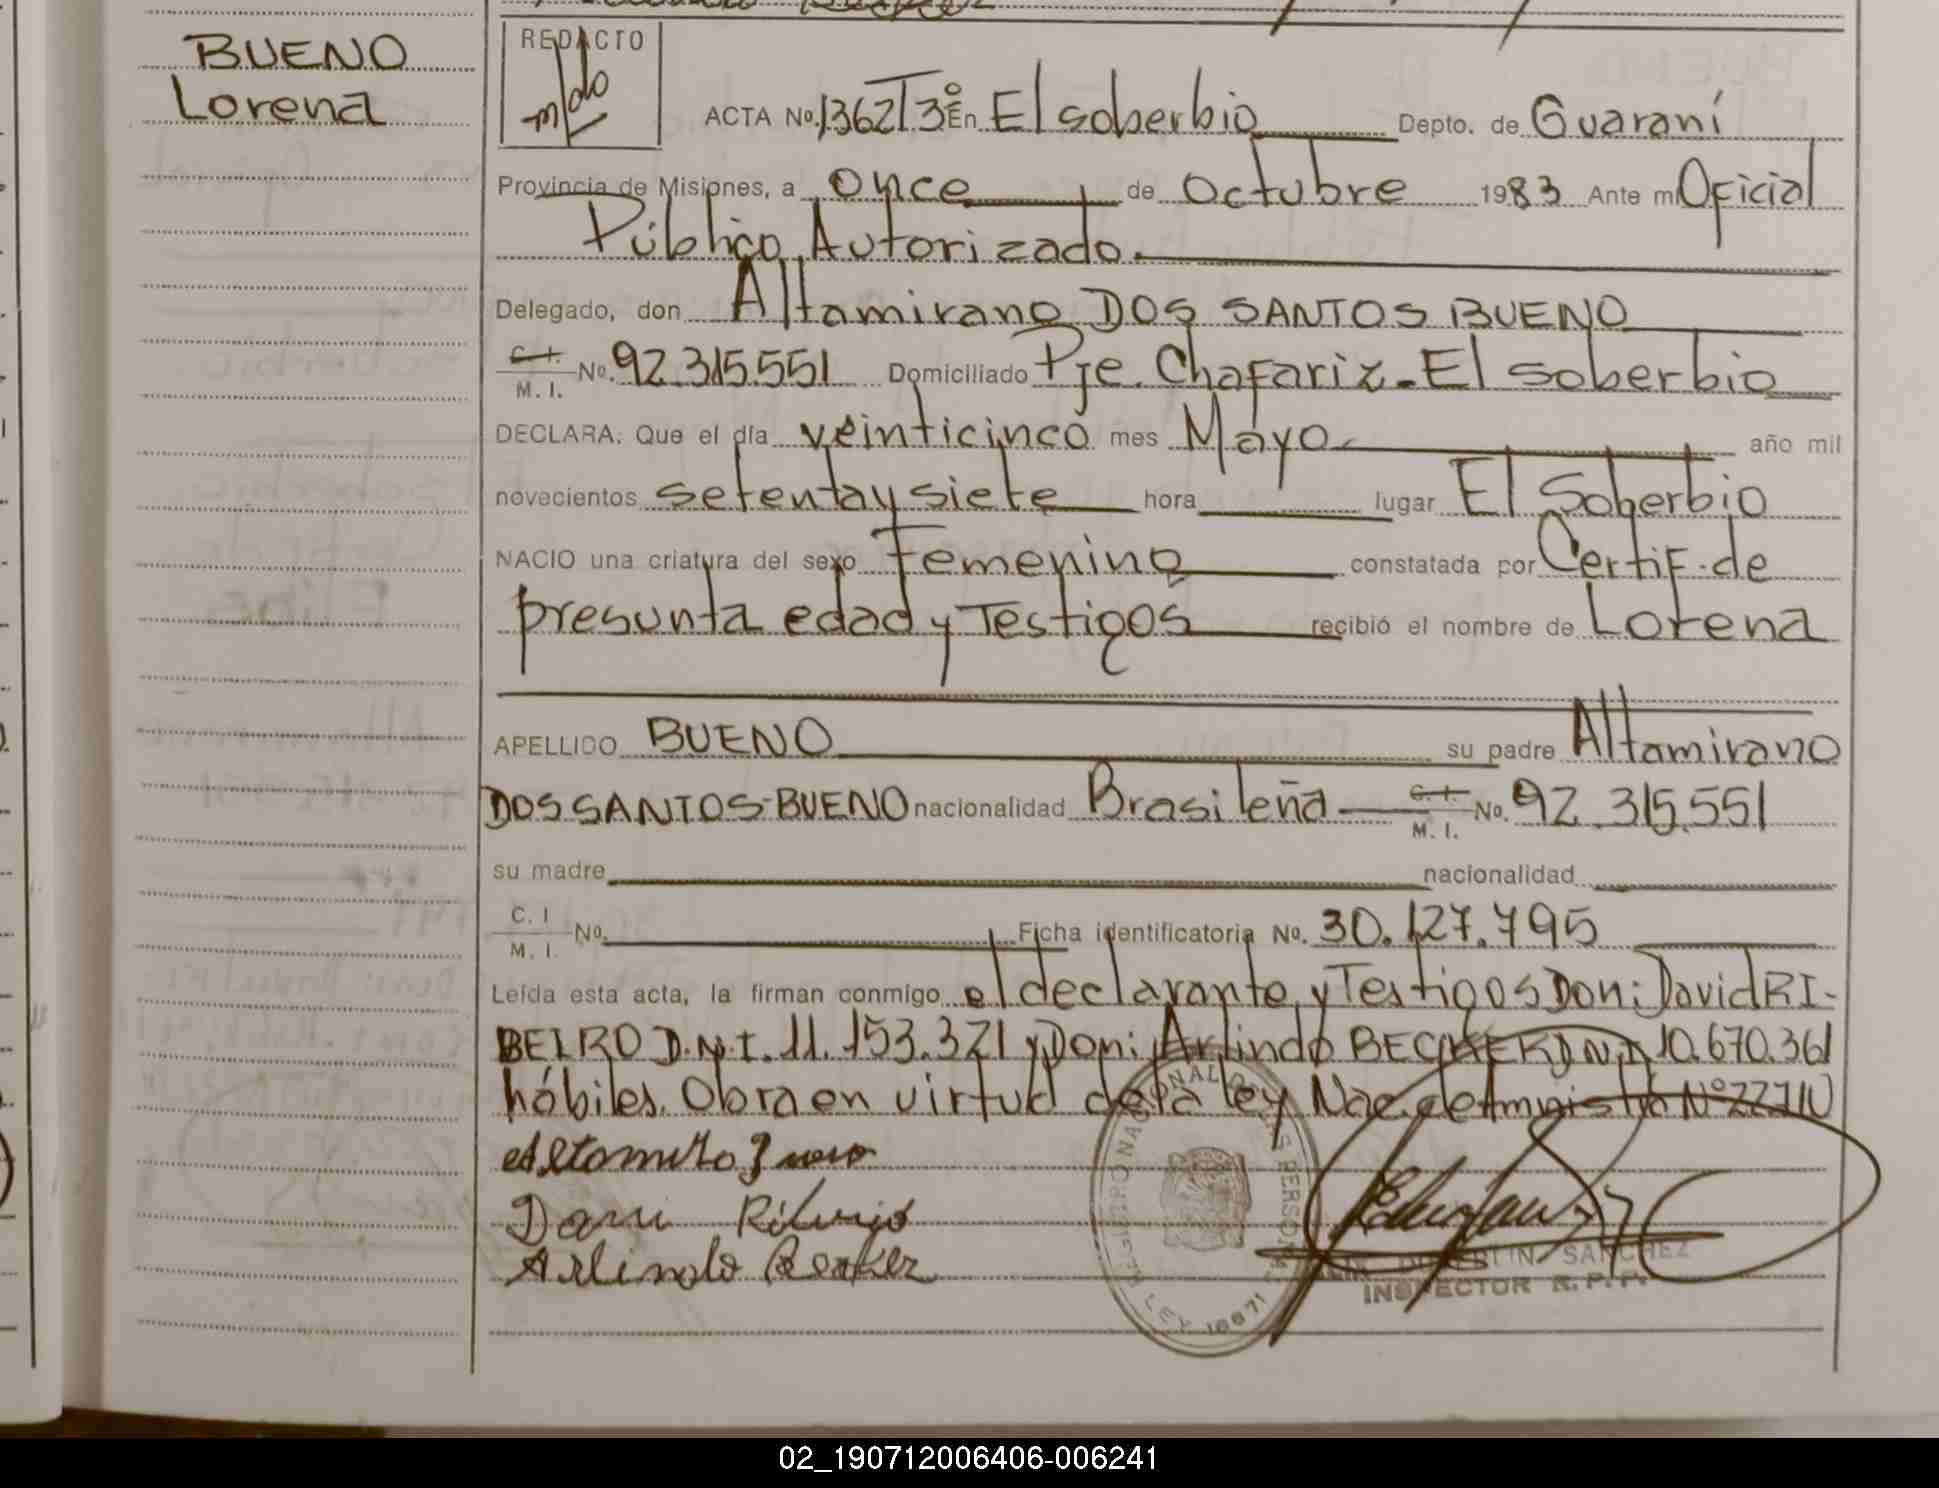 BUENO
Lorena
REDACTO
ACTA No. 1362 T 3º En El soberbio Depto. de Guaraní
Provincia de Misiones, a once de octubre 1983 Ante mi Oficial
Público Autorizado.
Delegado, don Altamirano DOS SANTOS BUENO
C.I. M. I. No. 92.315.551 Domiciliado Pje. Chafariz - El soberbio
DECLARA: Que el día veinticinco mes Mayo año mil
novecientos setenta y siete hora lugar El Soberbio
NACIO una criatura del sexo Femenino constatada por Certif. de
presunta edad y Testigos recibió el nombre de Lorena
APELLIDO BUENO su padre Altamirano
DOS SANTOS-BUENO nacionalidad Brasileña C.I. M. I. No. 92.315.551
su madre nacionalidad
C. I M. I. No. Ficha identificatoria No. 30.127.795
Leída esta acta, la firman conmigo el declarante y Testigos Don: David RI-
BEIRO D.N.I. 11.153.321 y Don: Arlindo BECKER D.N.I 10.670.361
hábiles. Obra en virtud de la ley Nac. de Amnistia Nº 22710
Arlindo Becker
REGISTRO NACIONAL DE LAS PERSONAS
LEY 16671
SANCHEZ
INSPECTOR R. P. P.
02_190712006406-006241